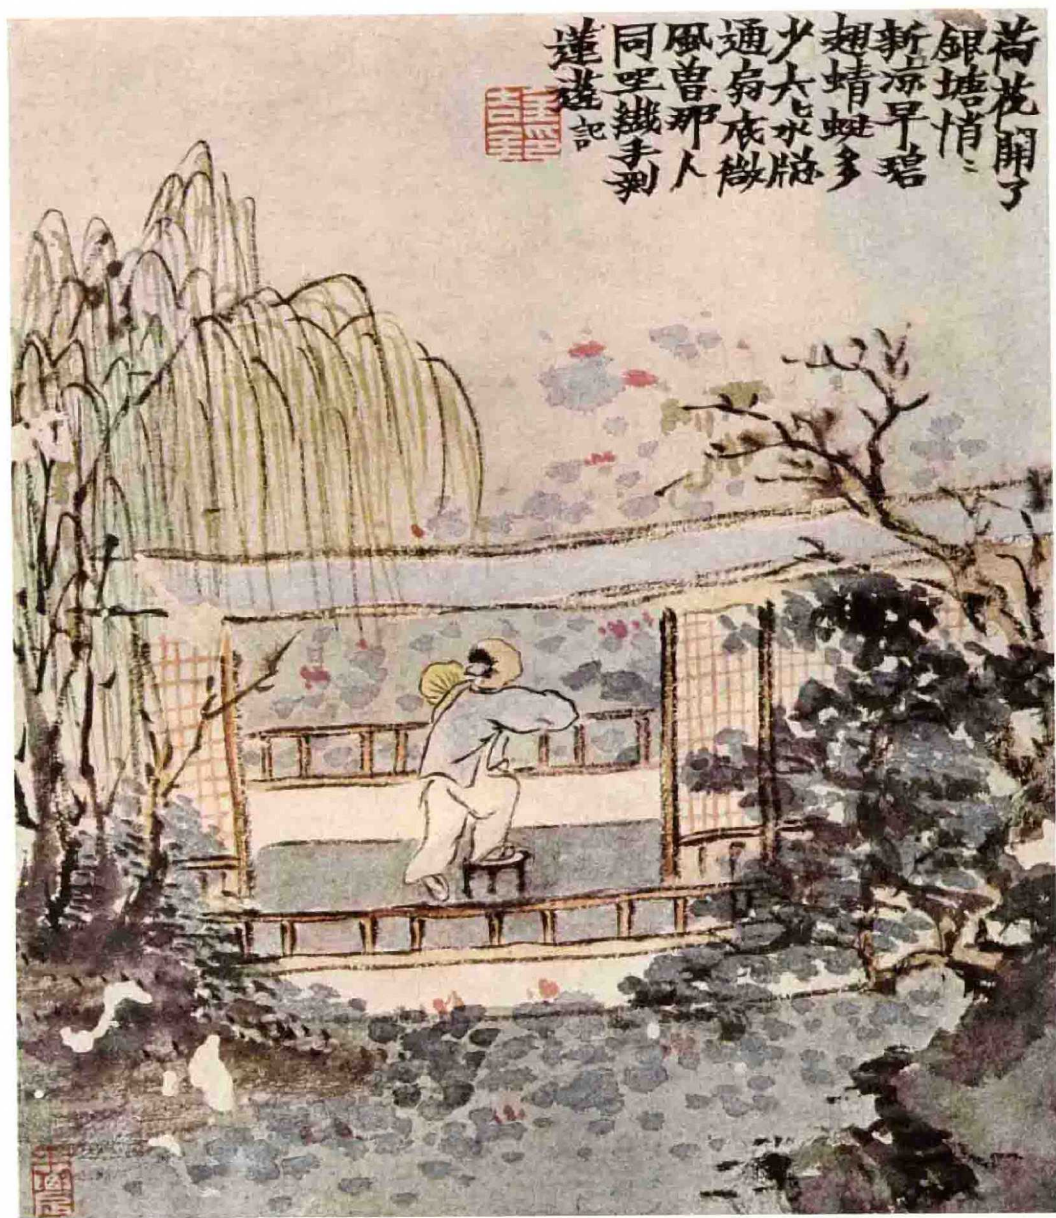 荷花開了
銀塘悄〻
新涼早碧
翅蜻蜓多
少六〻水牕
通扇底微
風曾那人
同坐纖手剥
蓮蓬 記
金吉金印